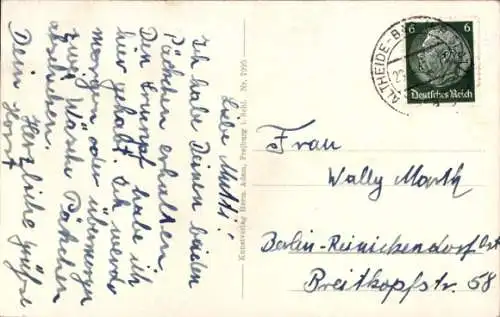 Liebe Mutti!
Ich habe Deinen beiden
Päckchen erhalten.
Den Trumpf habe ich
hier gehabt. Ich werde
morgen oder übermorgen
zwei Wäsche Päckchen
abschicken.
Herzliche Grüße
Dein Horst
Kunstverlag Herm. Adam, Freiburg i. Schl. Nr. 7995
ALTHEIDE-B
6 6
Deutsches Reich
Frau
Wally
Berlin-Reinickendorf Ost
Breitkopfstr. 58